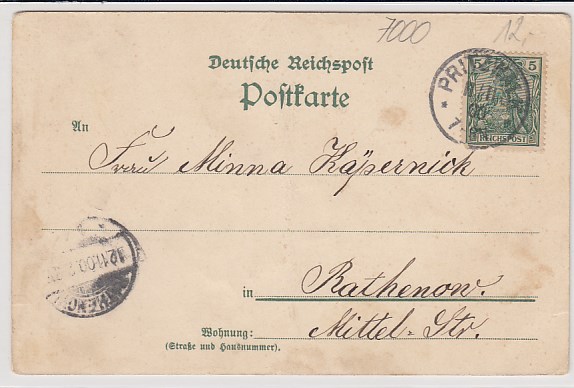 7000
12,-
Deutsche Reichspost
Postkarte
5 5
REICHSPOST
An
Frau Minna Käpernick
in Rathenow.
Wohnung: Mittel-Str.
(Straße und Hausnummer).
12.11.00.